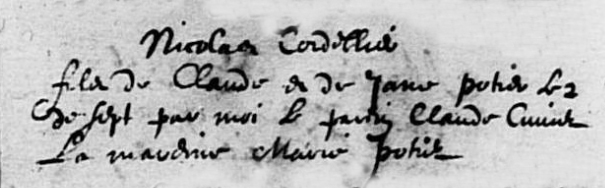 Nicolas Cordellier
filz de Claude et de Jane potier le 2
de sept par moi le parin Claude Cuvier
La mareine Marie potier